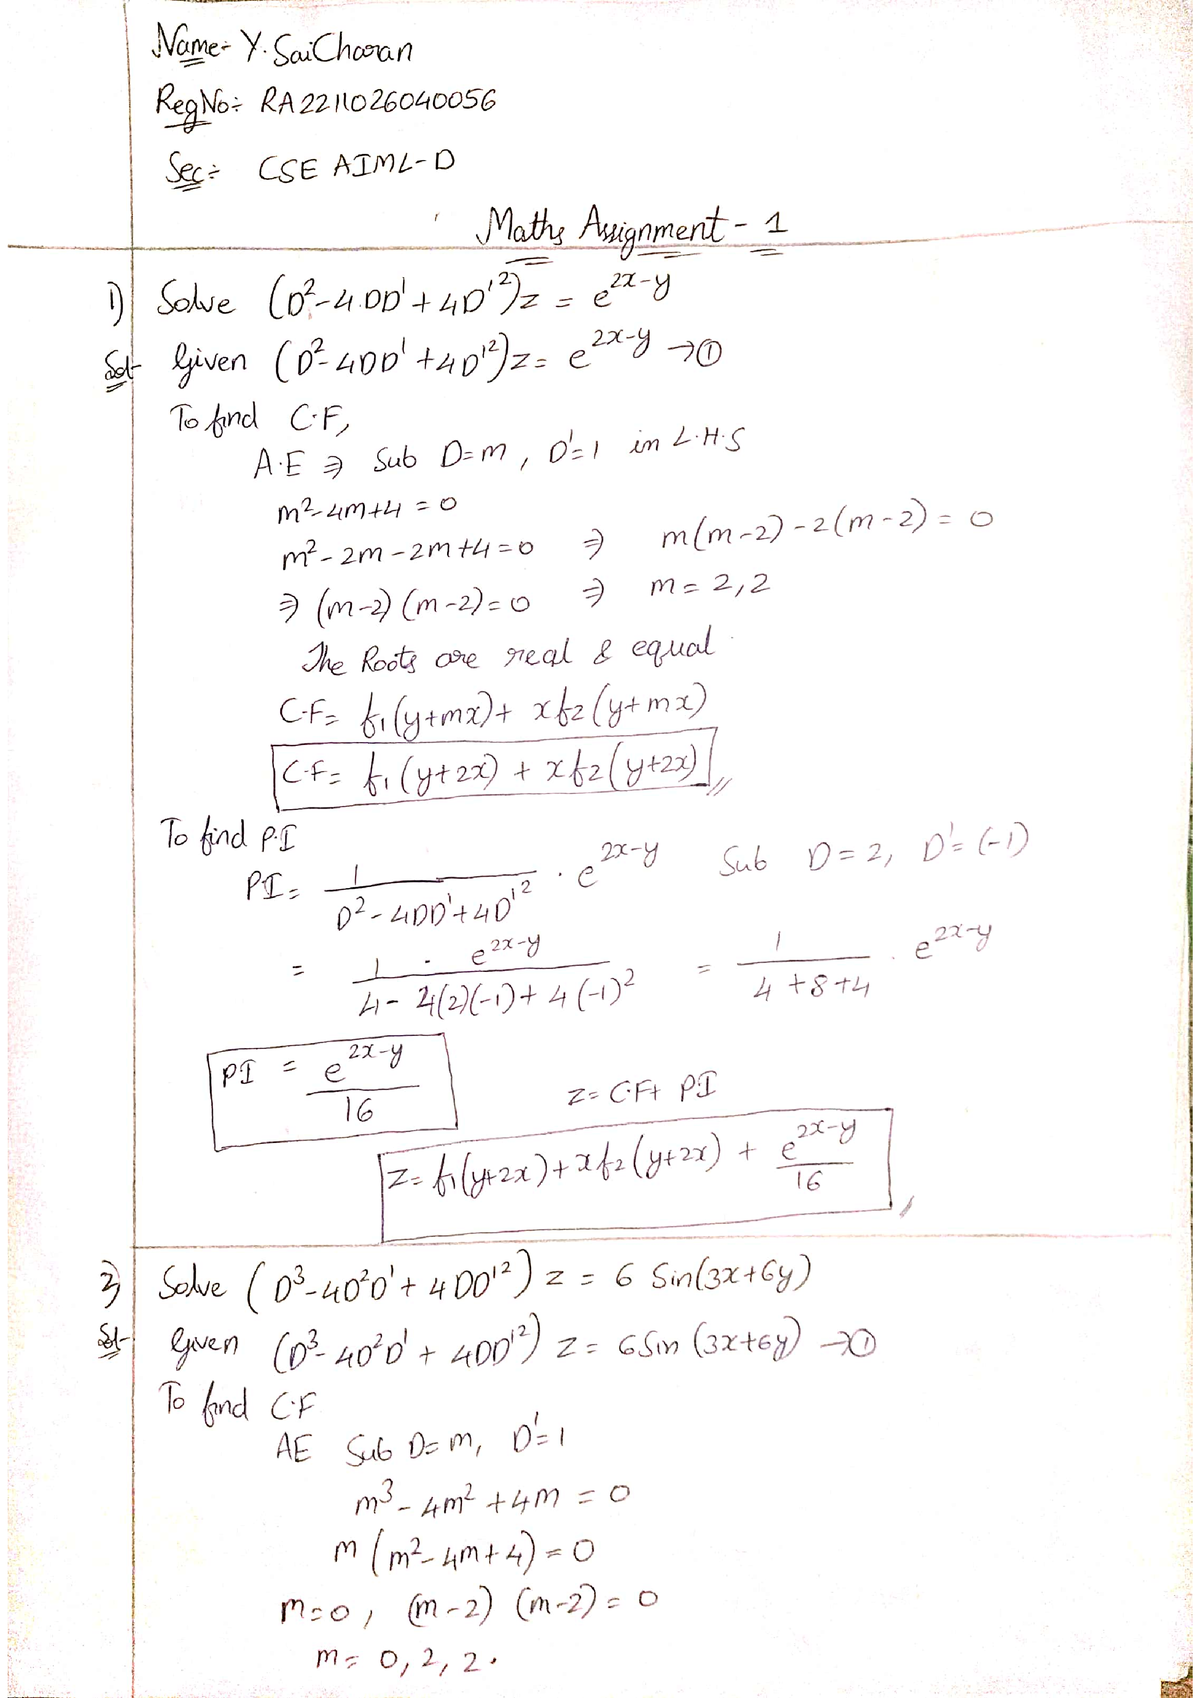 Name:- Y. SaiCharan
RegNo:- RA2211026040056
Sec:- CSE AIML-D
Maths Assignment - 1
1) Solve (D²-4DD'+4D'²)z = e^(2x-y)
Sol:- Given (D²-4DD'+4D'²)z = e^(2x-y) →①
To find C.F,
A.E ⇒ Sub D=m, D'=1 in L.H.S
m²-4m+4 = 0
m²-2m-2m+4=0 ⇒ m(m-2)-2(m-2) = 0
⇒ (m-2)(m-2)=0 ⇒ m=2,2
The Roots are real & equal
C.F= f₁(y+mx)+ xf₂(y+mx)
C.F= f₁(y+2x) + xf₂(y+2x)
To find P.I
PI = 1/(D²-4DD'+4D'²) · e^(2x-y) Sub D=2, D'=(-1)
= 1/(4-4(2)(-1)+4(-1)²) · e^(2x-y) = 1/(4+8+4) · e^(2x-y)
PI = e^(2x-y)/16
z= C.F+ PI
z= f₁(y+2x)+xf₂(y+2x) + e^(2x-y)/16
2) Solve (D³-4D²D'+4DD'²) z = 6 Sin(3x+6y)
Sol:- Given (D³-4D²D'+4DD'²) z = 6Sin(3x+6y) →①
To find C.F
AE Sub D=m, D'=1
m³-4m²+4m = 0
m(m²-4m+4)=0
m=0, (m-2) (m-2)=0
m= 0,2,2.